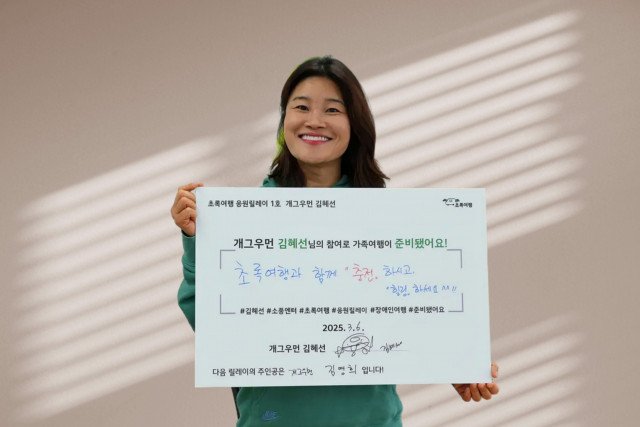 초록여행 응원릴레이 1호 개그우먼 김혜선
초록여행
개그우먼 김혜선님의 참여로 가족여행이 준비됐어요!
초록여행과 함께 "충전" 하시고.
"힐링" 하세요 ^^!!
#김혜선 #소풍엔터 #초록여행 #응원릴레이 #장애인여행 #준비됐어요
2025. 3. 6.
개그우먼 김혜선
다음 릴레이의 주인공은 개그우먼 김영희 입니다!